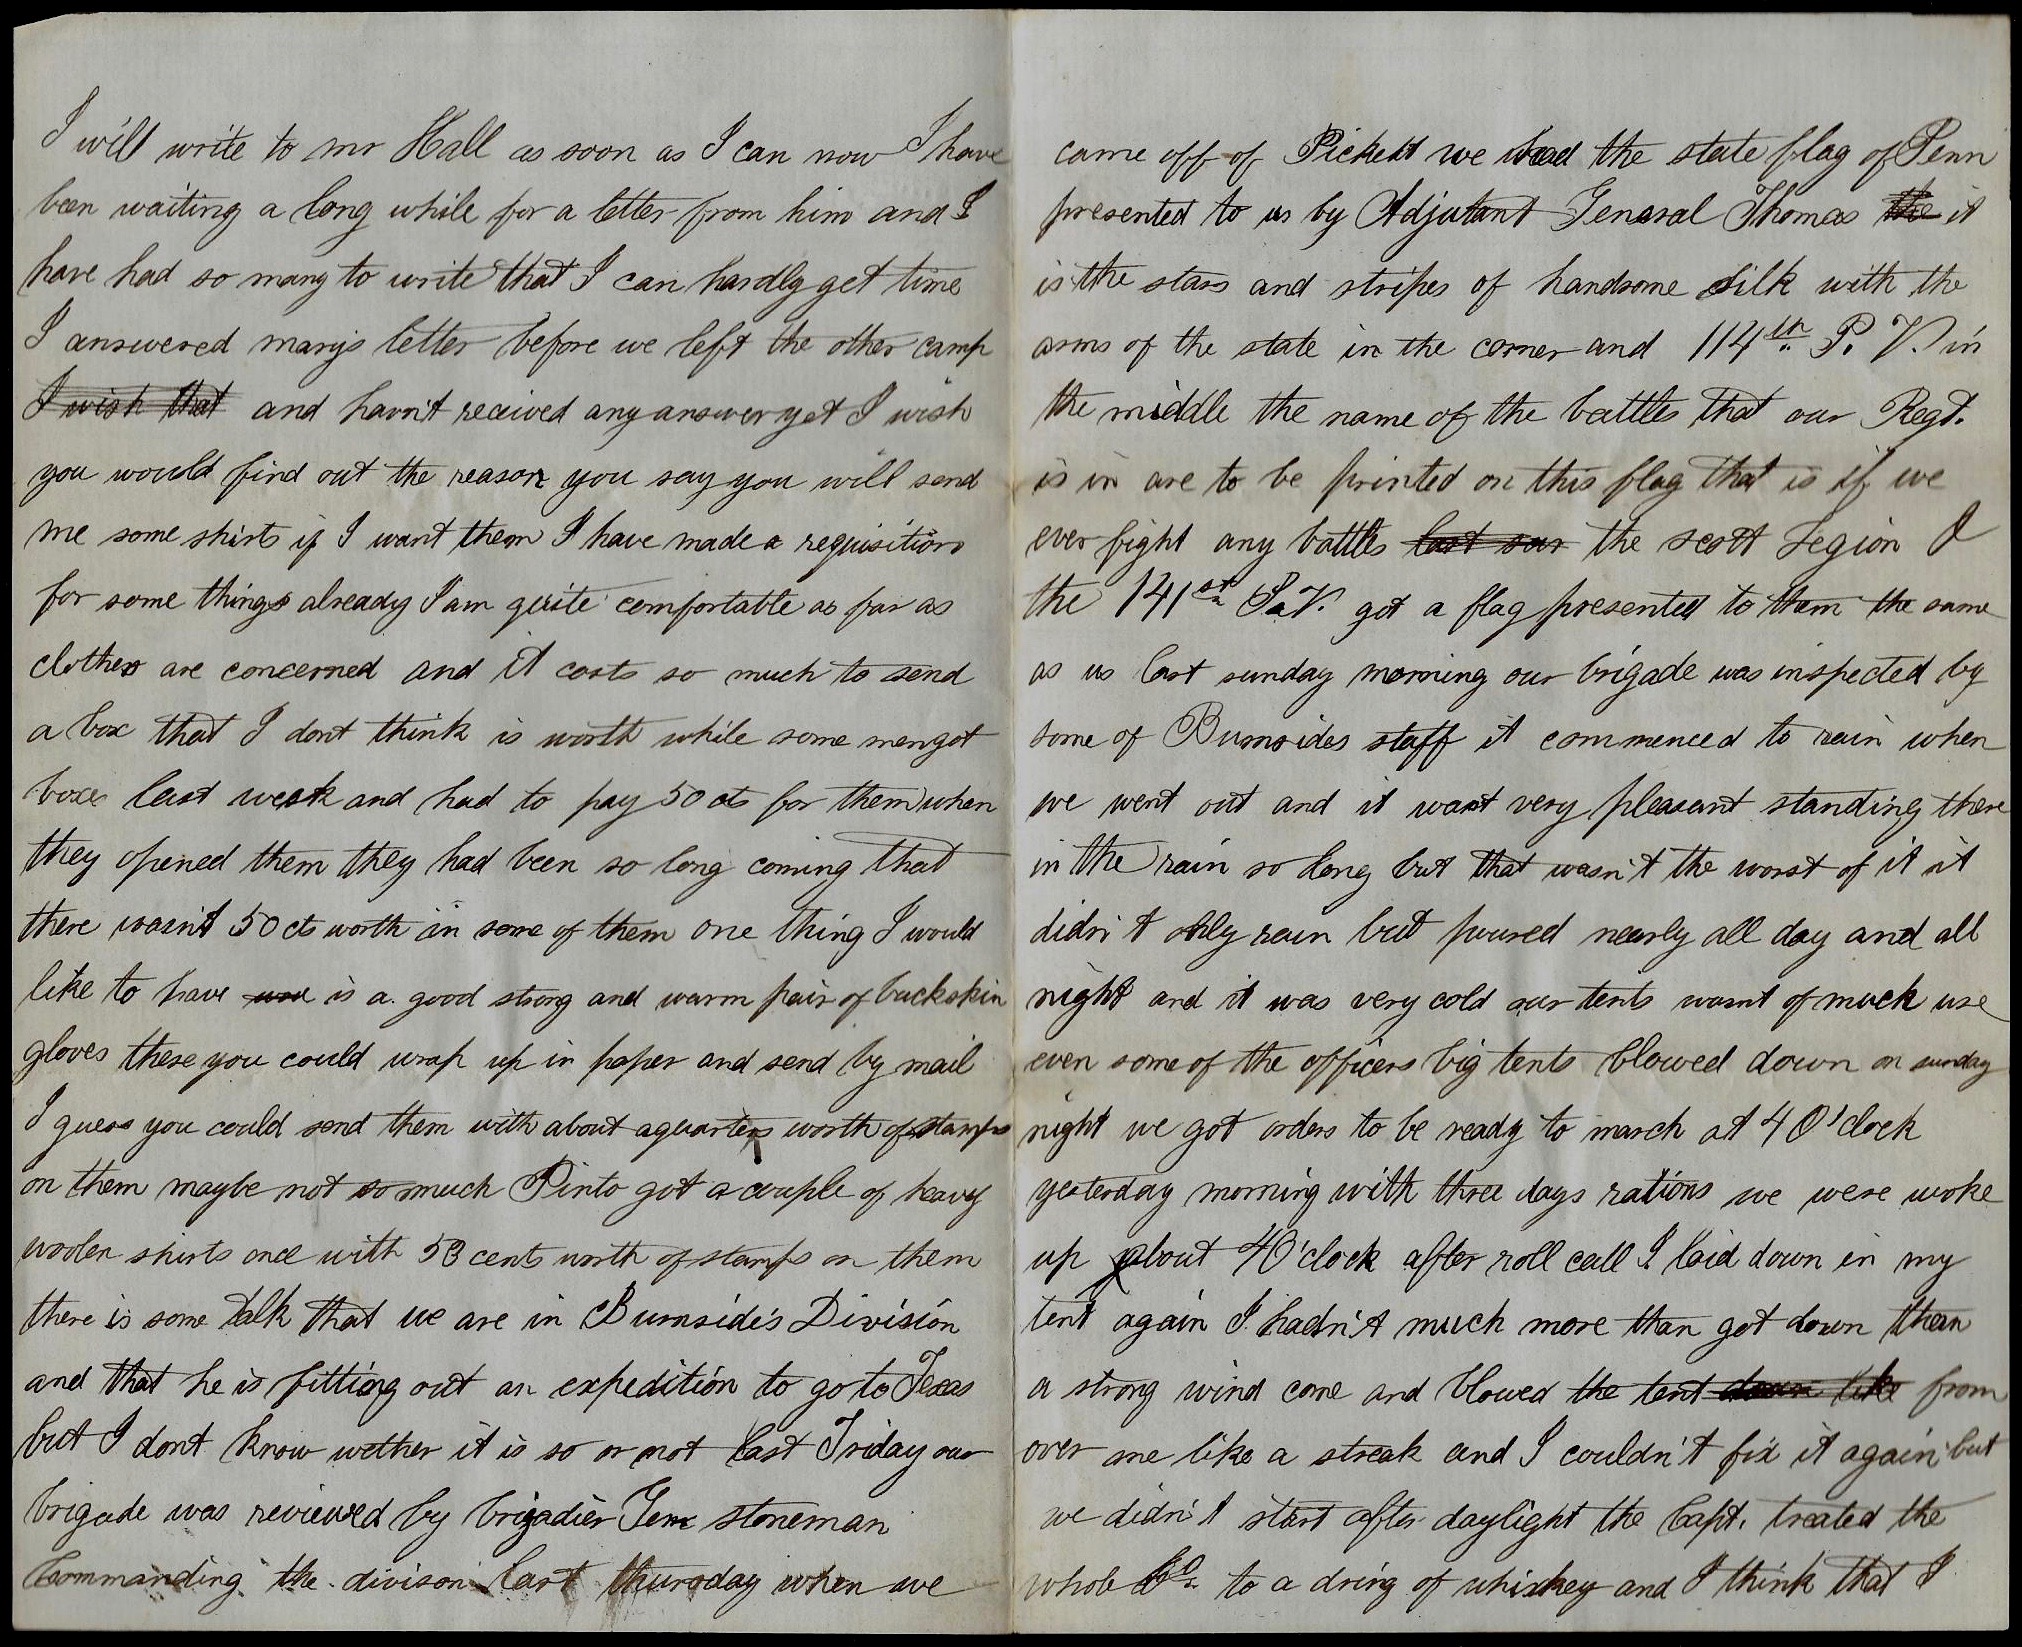 I will write to mr Hall as soon as I can now I have
been waiting a long while for a letter from him and I
have had so many to write that I can hardly get time
I answered marys letter before we left the other camp
I wish that and havn't received any answer yet I wish
you would find out the reason you say you will send
me some shirts if I want them I have made a requisition
for some things already I am quite comfortable as far as
clothes are concerned and it costs so much to send
a box that I dont think is worth while some men got
boxes last week and had to pay 50 cts for them when
they opened them they had been so long coming that
there wasn't 50 cts worth in some of them one thing I would
like to have is a good strong and warm pair of buckskin
gloves these you could wrap up in paper and send by mail
I guess you could send them with about a quarters worth of stamps
on them maybe not so much Pinto got a couple of heavy
woolen shirts once with 53 cents worth of stamps on them
there is some talk that we are in Burnside's Division
and that he is fitting out an expedition to go to Texas
but I dont know wether it is so or not last Friday our
brigade was reviewed by brigadier Gen stoneman
Commanding the divison last thursday when we
came off of Pickett we had the state flag of Penn
presented to us by Adjutant General Thomas the it
is the stars and stripes of handsome silk with the
arms of the state in the corner and 114th P. V. in
the middle the name of the battles that our Regt.
is in are to be printed on this flag that is if we
ever fight any battles last sun the scott Legion I
the 141st P.V. got a flag presented to them the same
as us last sunday morning our brigade was inspected by
some of Burnsides staff it commenced to rain when
we went out and it wasnt very pleasant standing there
in the rain so long but that wasn't the worst of it it
didn't only rain but poured nearly all day and all
night and it was very cold our tents wasnt of much use
even some of the officers big tents blowed down on sunday
night we got orders to be ready to march at 4 O'clock
yesterday morning with three days rations we were woke
up about 4 O'clock after roll call I laid down in my
tent again I hadn't much more than got down than
a strong wind come and blowed the tent down like from
over me like a streak and I couldn't fix it again but
we didn't start after daylight the Capt. treated the
whole Co. to a dring of whiskey and I think that I